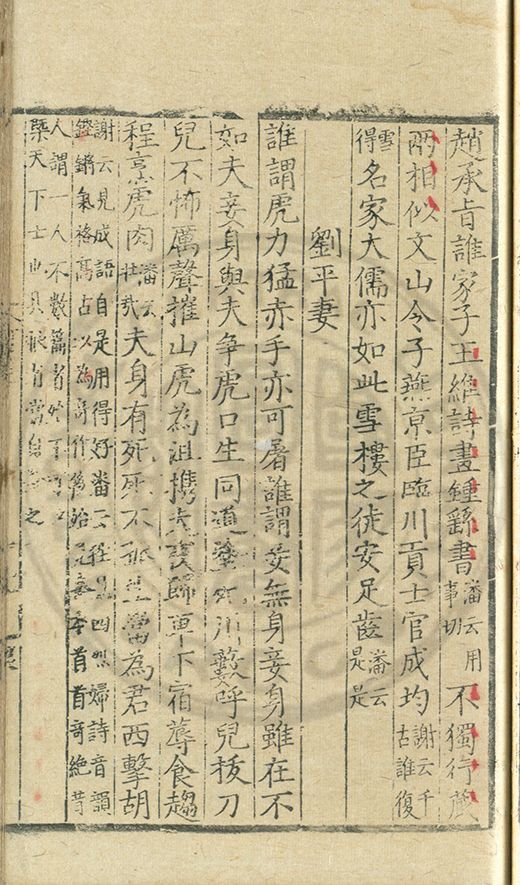 趙承旨誰家子王維詩畫鍾繇書潘云用事切不獨行藏
兩相似文山令子燕京臣臨川貢士官成均謝云千古誰復
雪得名家大儒亦如此雪樓之徒安足齒潘云是是
劉平妻
誰謂虎力猛赤手亦可屠誰謂妾無身妾身雖在不
如夫妾身與夫爭虎口生同道塗死川藪呼兒拔刀
兒不怖厲聲摧山虎為沮携夫護歸車下宿蓐食趨
程烹虎肉潘云壯哉夫身有死死不為君西擊胡
謝云見成語自是用得好潘云程思四烈婦詩音韻
鏗鏘氣格高古以為奇作為始見妾本首首奇絕昔
人謂一人不數篇者
槩天下士也具眼者當自之